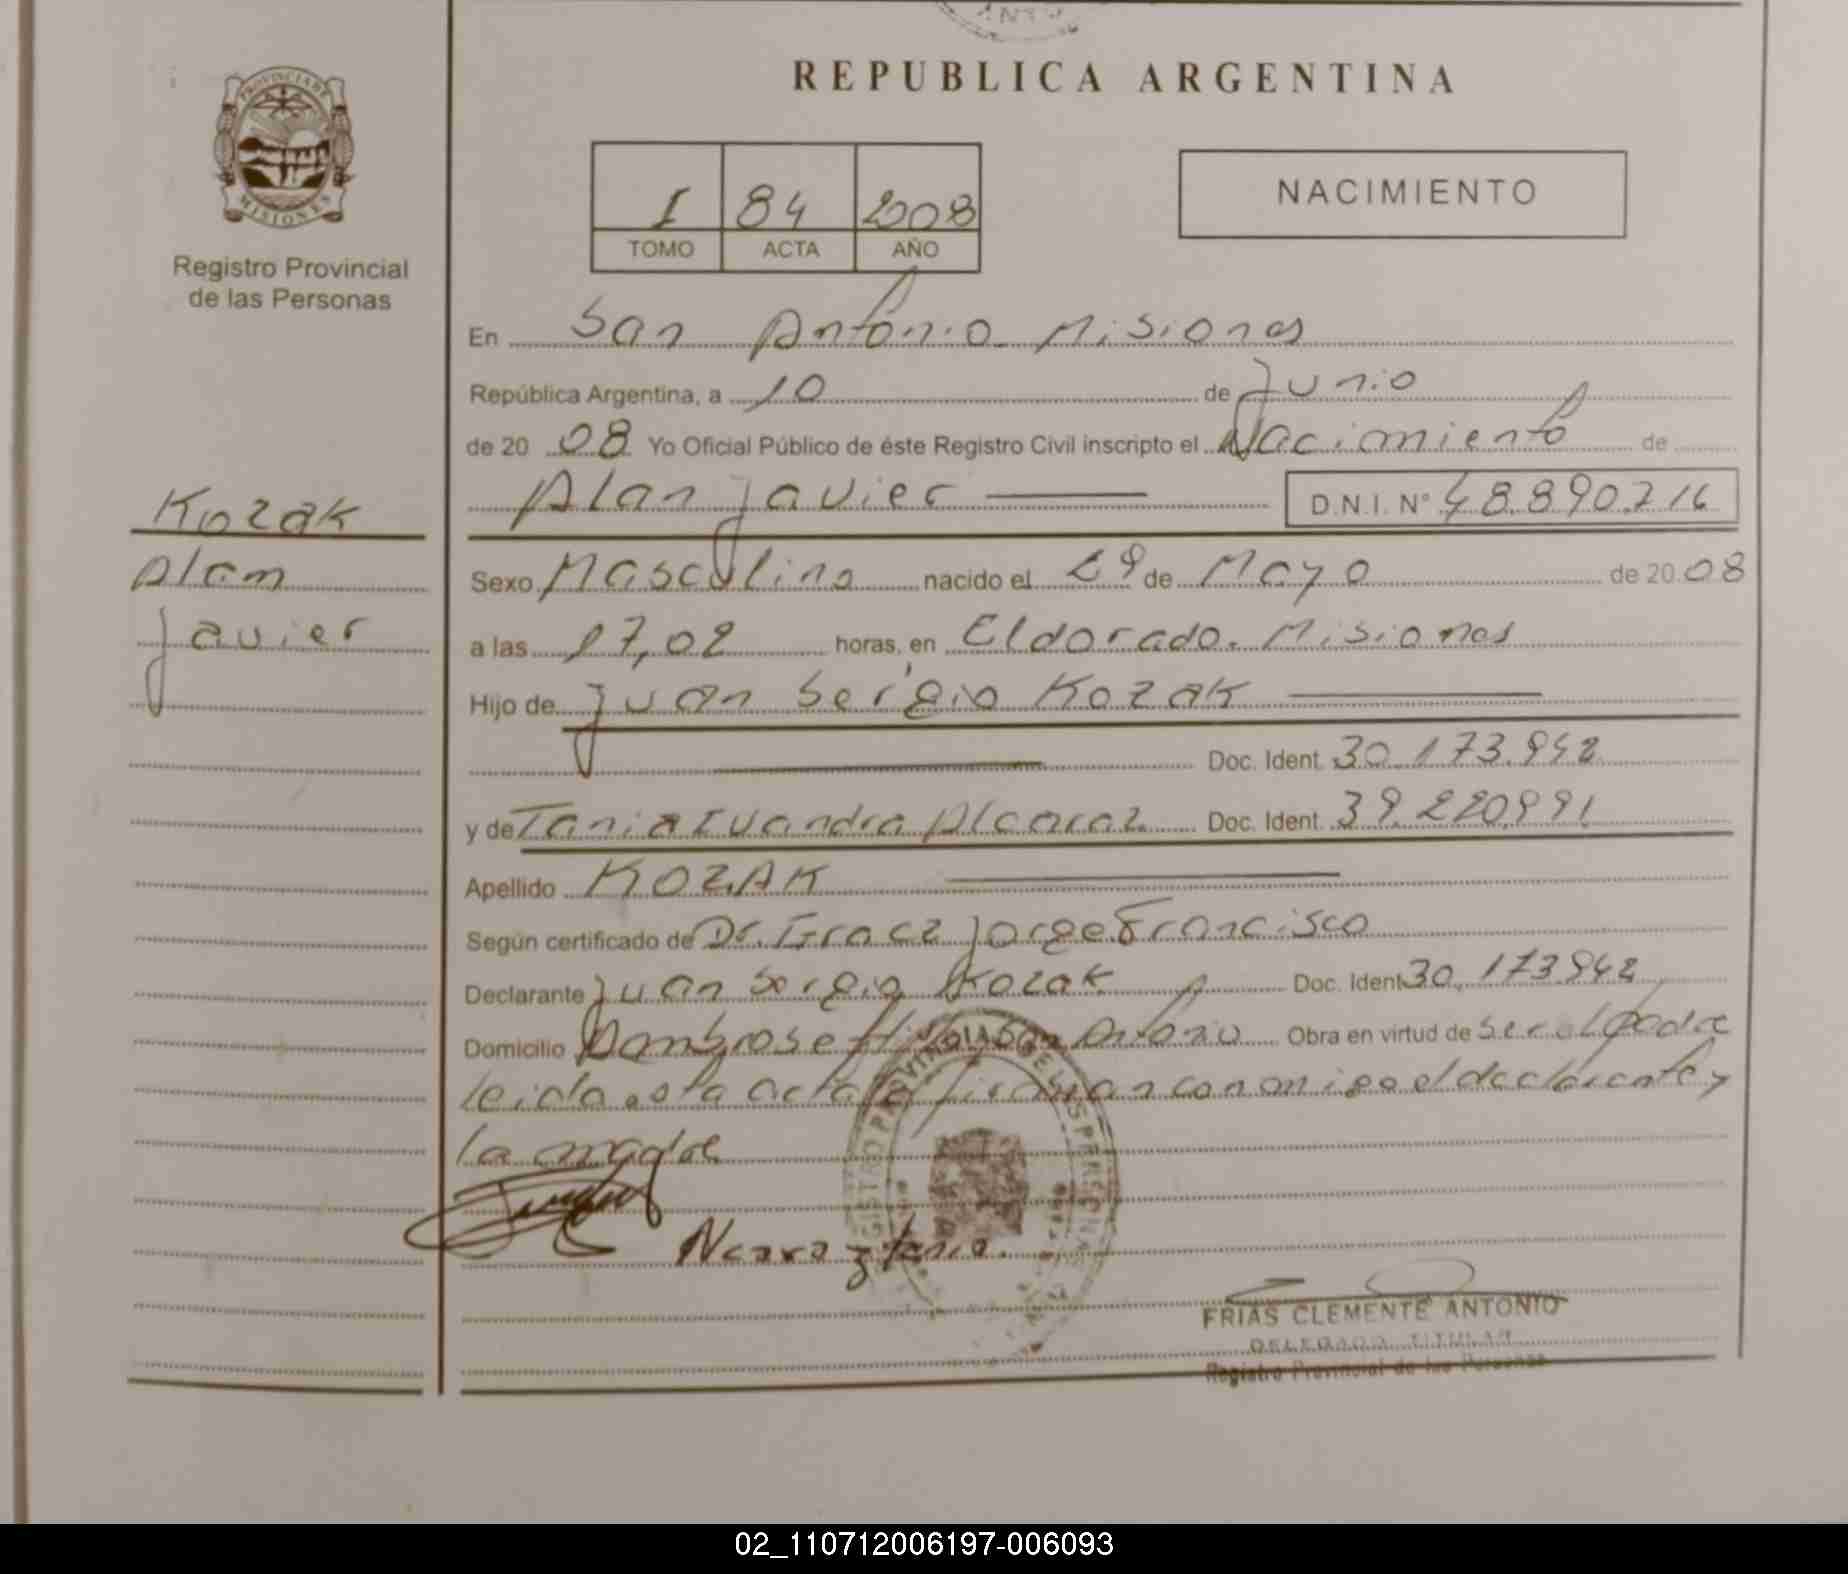 REPUBLICA ARGENTINA
PROVINCIA DE MISIONES
Registro Provincial
de las Personas
I 84 2008
TOMO ACTA AÑO
NACIMIENTO
En San Antonio Misiones
República Argentina, a 10 de Junio
de 20 08 Yo Oficial Público de éste Registro Civil inscripto el Nacimiento de
Alan Javier D.N.I. Nº 48.890.716
Kozak
Alan
Javier
Sexo Masculino nacido el 29 de Mayo de 20 08
a las 17,02 horas, en Eldorado. Misiones
Hijo de Juan Sergio Kozak
Doc. Ident. 30.173.942
y de Tania Ivandra Alcaraz Doc. Ident. 39.220.991
Apellido KOZAK
Según certificado de Dr. Jorge Francisco
Declarante Juan Sergio Kozak Doc. Ident 30.173942
Domicilio San Antonio Obra en virtud de ser el padre
leida esta acta la firman conmigo el declarante y
la madre
Alcaraz tania.
FRIAS CLEMENTE ANTONIO
DELEGADO TITULAR
Registro Provincial de las Personas
02_110712006197-006093